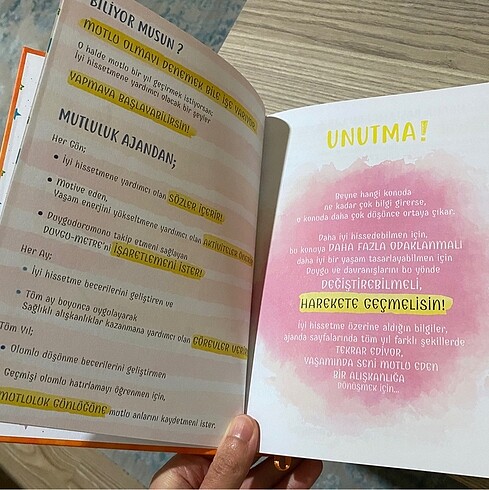 BİLİYOR MUSUN ?
MUTLU OLMAYI DENEMEK BİLE İŞE YARIYOR!
O halde mutlu bir yıl geçirmek istiyorsan;
İyi hissetmene yardımcı olacak bir şeyler
YAPMAYA BAŞLAYABİLİRSİN!
MUTLULUK AJANDAN;
Her Gün;
• İyi hissetmene yardımcı olan SÖZLER İÇERİR!
• Motive eden,
Yaşam enerjini yükseltmene yardımcı olan AKTİVİTELER
• Duygudurumunu takip etmeni sağlayan
DUYGU-METRE'ni İŞARETLEMENİ İSTER!
Her Ay;
• İyi hissetme becerilerini geliştiren ve
• Tüm ay boyunca uygulayarak
Sağlıklı alışkanlıklar kazanmana yardımcı olan GÖREVLER
Tüm Yıl;
• Olumlu düşünme becerilerini geliştirmen
Geçmişi olumlu hatırlamayı öğrenmen için,
MUTLULUK GÜNLÜĞÜNE mutlu anlarını kaydetmeni ister.
UNUTMA!
Beyne hangi konuda
ne kadar çok bilgi girerse,
o konuda daha çok düşünce ortaya çıkar.
Daha iyi hissedebilmen için,
bu konuya DAHA FAZLA ODAKLANMALI
daha iyi bir yaşam tasarlayabilmen için
Duygu ve davranışlarını bu yönde
DEĞİŞTİREBİLMELİ,
HAREKETE GEÇMELİSİN!
İyi hissetme üzerine aldığın bilgiler,
ajanda sayfalarında tüm yıl farklı şekillerde
TEKRAR EDİYOR,
YAŞAMINDA SENİ MUTLU EDEN
BİR ALIŞKANLIĞA
DÖNÜŞMEK İÇİN...